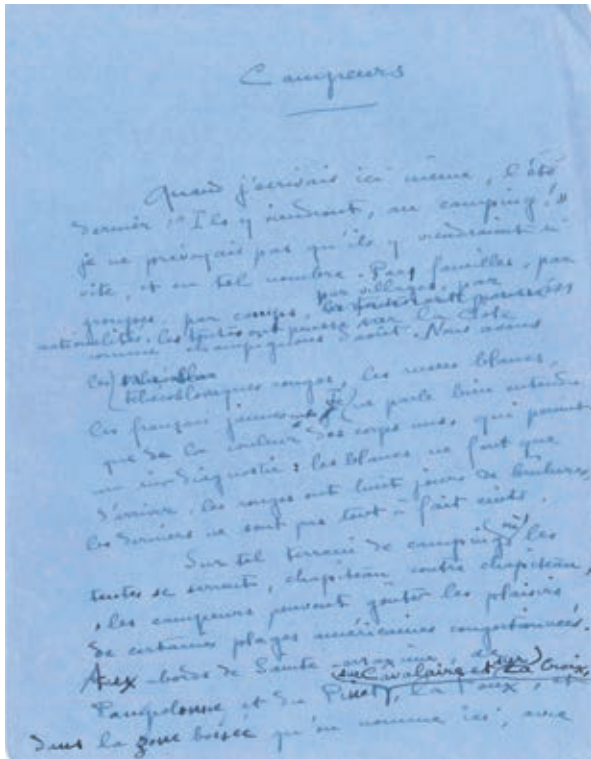 Campeurs
Quand j'écrivais ici même, l'été
dernier "Ils y viendront, au camping!"
je ne prévoyais pas qu'ils y viendraient si
vite, et en tel nombre. Par familles, par
groupes, par camps, par villages, par
nationalités, les tentes ont poussé sur la Côte
comme champignons d'août. Nous avons
les
tchécoslovaques rouges, les russes blancs,
les français jaunes. Je ne parle bien entendu
que de la couleur des corps nus, qui permet
un diagnostic : les blancs ne font que
d'arriver, les rouges ont huit jours de brûlures,
les derniers ne sont pas tout à fait cuits.
Sur tel terrain de camping où les
tentes se serrent, chapiteau contre chapiteau,
les campeurs peuvent goûter les plaisirs
de certaines plages américaines congestionnées.
Aux bords de Sainte-Maxime, Cavalaire et La Croix,
Pampelonne et du Pinet, la Foux, et
dans la zone boisée qu'on nomme ici, avec